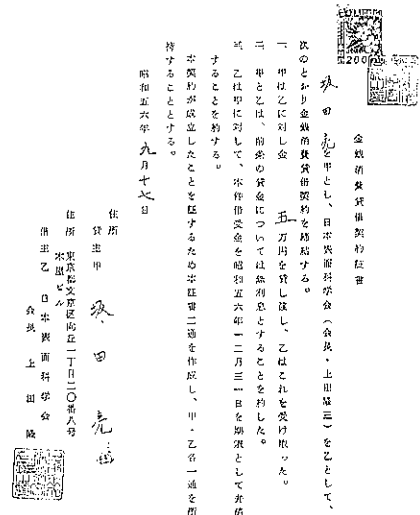 200
金銭消費貸借契約証書
坂田亮を甲とし、日本表面科学会(会長・上田隆三)を乙として、
次のとおり金銭消費貸借契約を締結する。
一、甲は乙に対し金 五 万円を貸し渡し、乙はこれを受け取った。
二、甲と乙は、前条の貸金については無利息とすることを約した。
三、乙は甲に対して、本件借受金を昭和五六年一二月三一日を期限として弁済
することを約する。
本契約が成立したことを証するため本証書二通を作成し、甲・乙各一通を保
持することとする。
昭和五六年九月十七日
住所
貸主甲 坂田亮
住所 東京都文京区向丘二丁目二〇番八号
ビル
借主乙 日本表面科学会
会長 上田隆